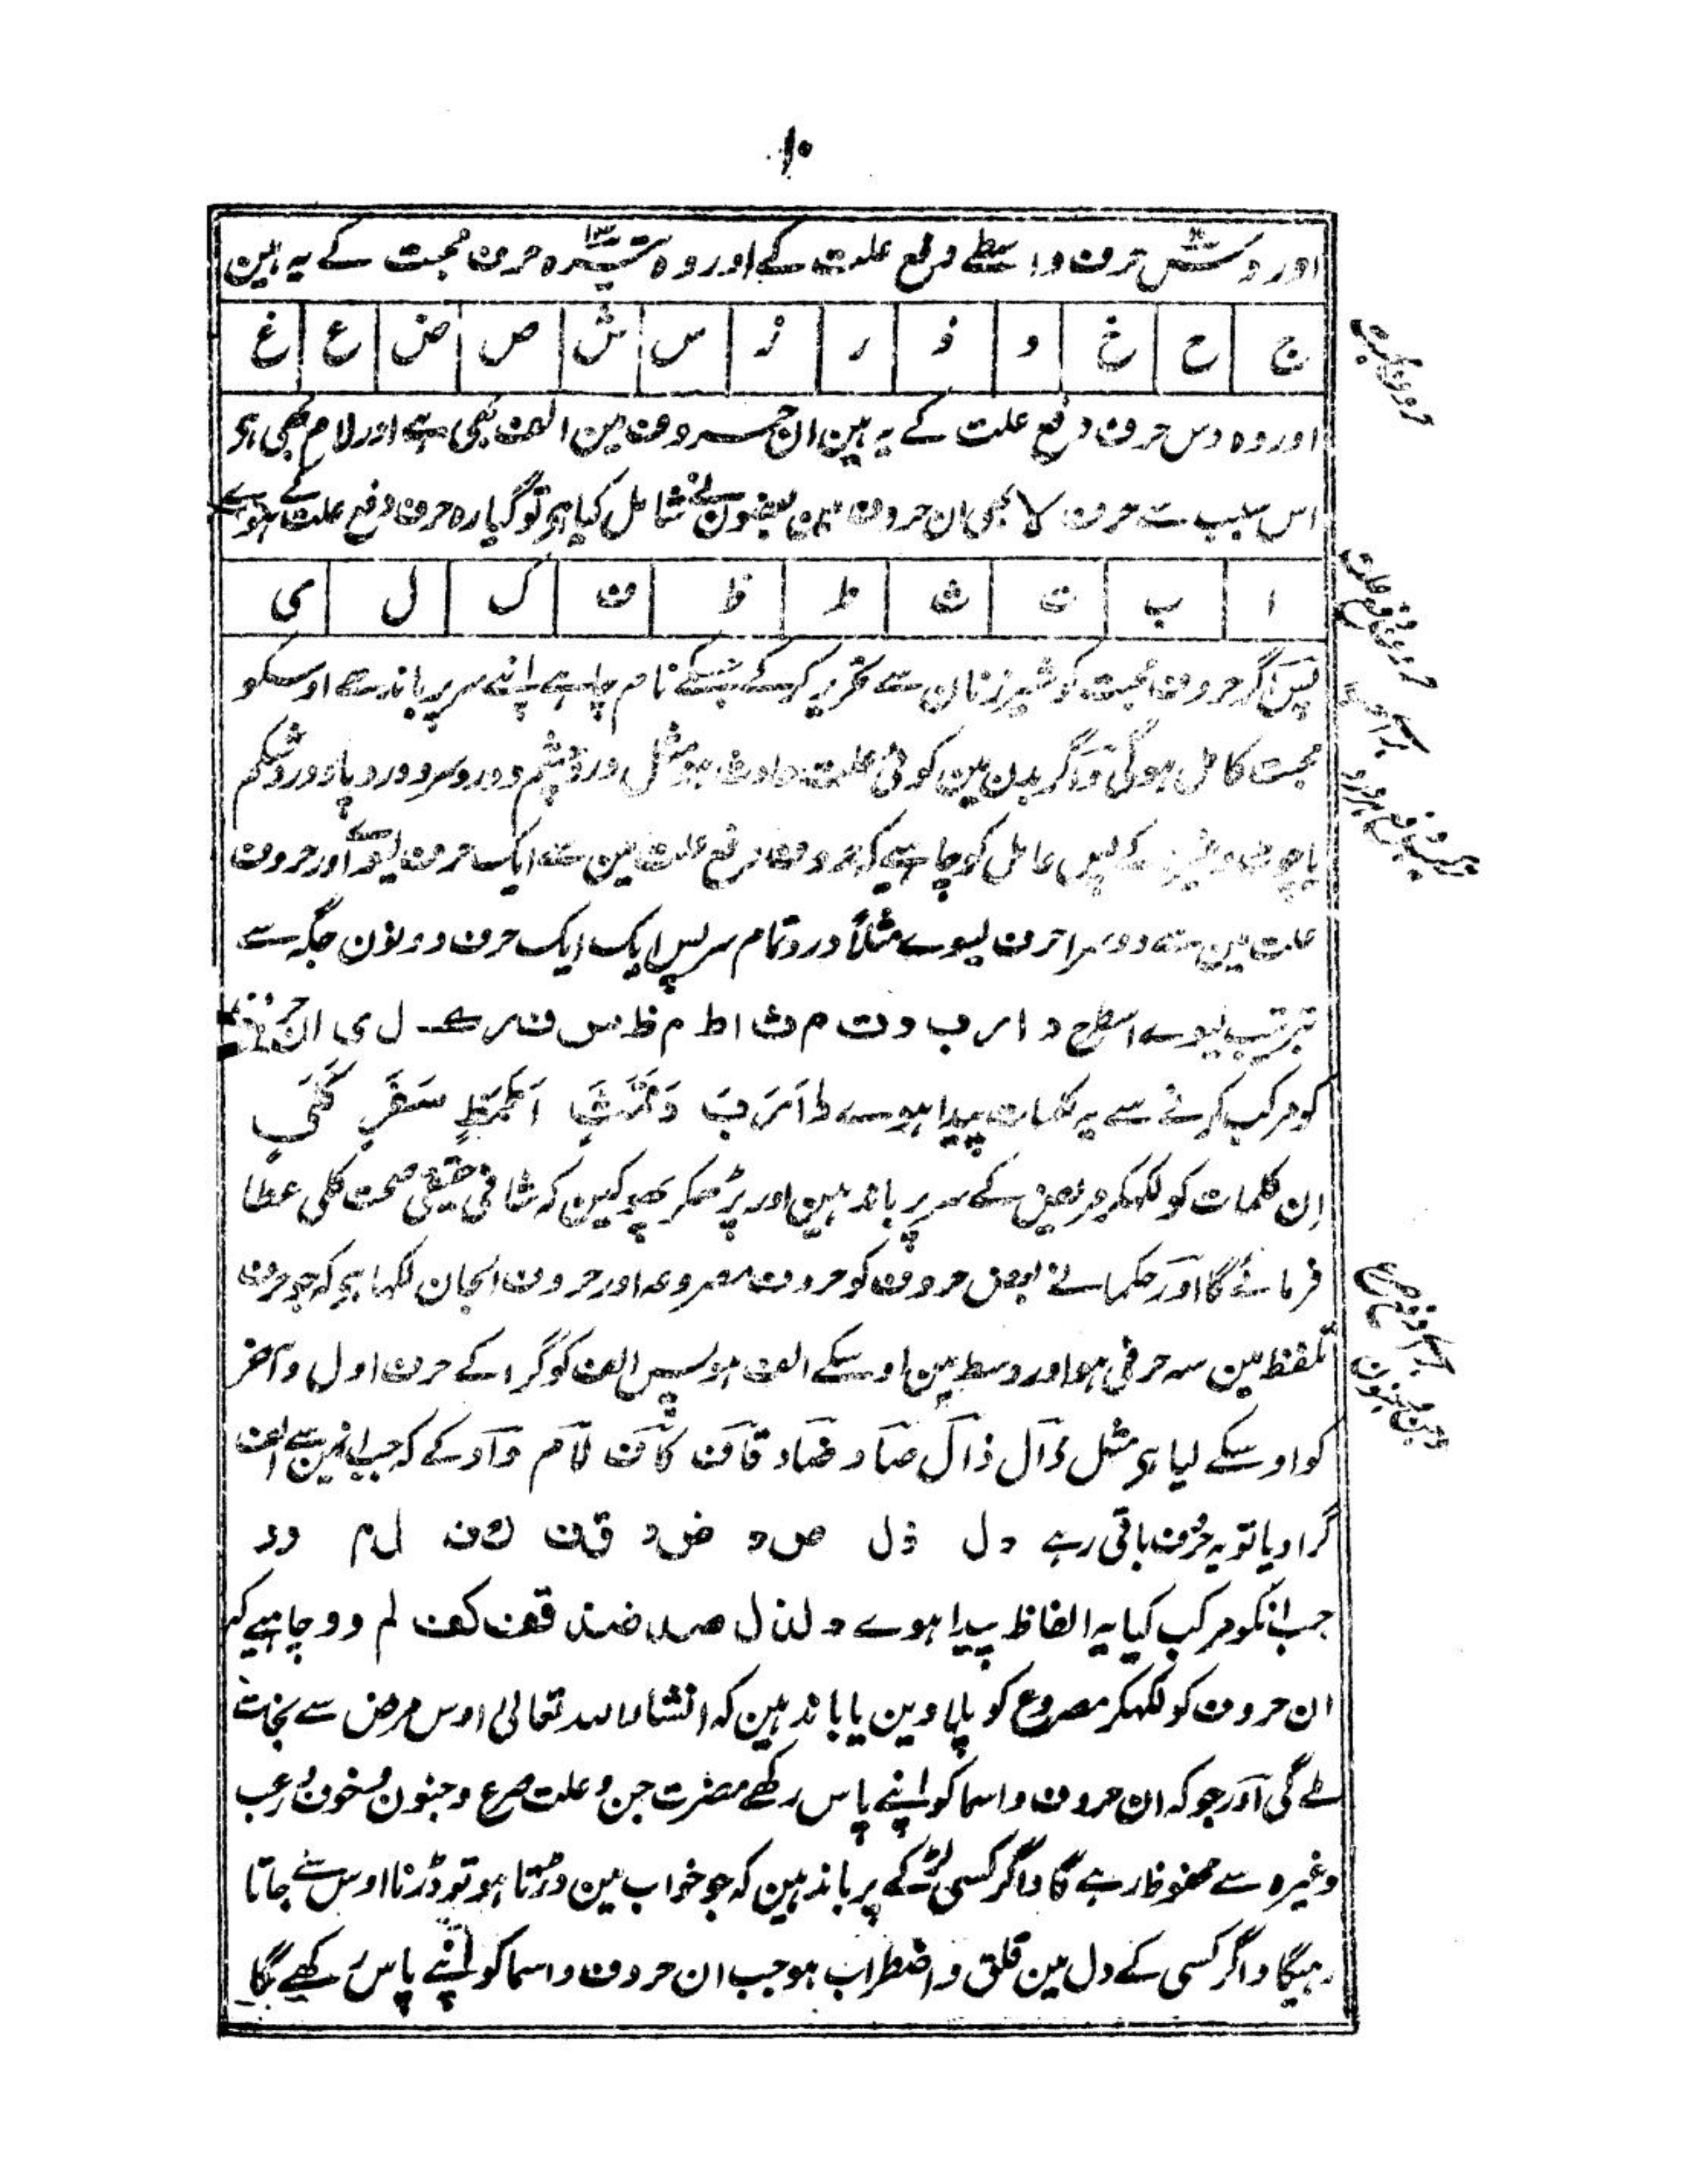 ۱۰
اور دس حرف واسطے دفع علت کے اور وہ تیرہ حرف محبت کے یہ ہین
ج ح خ د ذ ر ز س ش ص ض ع غ
حروف محبت
اور وہ دس حرف دفع علت کے یہ ہین ان حروف مین الف بھی ہے اور لام بھی ہی
اس سبب سے حرف لا بھی ان حروف مین بعضون نے شامل کیا ہی تو گیارہ حرف دفع علت کے ہوے
ا ب ت ث ط ظ ف ک ل ی
حروف دفع علت
پس اگر حروف محبت کو شیر زنان سے تحریر کرکے جسکے نام چاہے اپنے سر پر باندھے اوسکو
محبت کامل ہوگی واگر بدن مین کوئی علت حادث ہو مثل درد چشم و درد سر و درد پا و درد شکم
یا چوٹ وغیرہ کے پس عامل کو چاہیے کہ حروف دفع علت مین سے ایک حرف لیوے اور حروف
علت مین سے دوسرا حرف لیوے مثلاً درد تمام سر پس ایک ایک حرف دونون جگہ سے
بترتیب لیوے اسطرح د ا ر ب د ت م ث ا ط م ظ س ف ر ک ل ی ان حرفون
کو مرکب کرنے سے یہ کلمات پیدا ہوے دَاَرَبَ دَتَمَثَ اَطَمَظٍ سَفَرِ كَلَیِ
اِن کلمات کو لکھکر مریض کے سر پر باندہین اور پڑھکر پھوکین کہ شافی حقیقی صحت کلی عطا
فرمائے گا اور حکما نے بعض حروف کو حروف مصروعہ اور حروف الجان لکھا ہی کہ جو حرف
تلفظ مین سہ حرفی ہو اور وسط مین اوسکے الف ہو پس الف کو گرا کے حرف اول و آخر
کو اوسکے لیا ہی مثل دال ذال صاد ضاد قاف کاف لام واو کے کہ جب انمین سے الف
گرادیا تو یہ حرف باقی رہے دل ذل ص د ض د ق ف ک ف ل م و و
جب انکو مرکب کیا یہ الفاظ پیدا ہوے دلذل صد ضد قف کف لم وو چاہیے کہ
ان حروف کو لکھکر مصروع کو پلا دین یا باندہین کہ انشاءاللہ تعالی اوس مرض سے نجات
ملے گی اور جو کہ ان حروف و اسما کو اپنے پاس رکھے مضرت جن و علت صرع و جنون و خوف و رعب
وغیرہ سے محفوظ رہے گا واگر کسی لڑکے پر باندہین کہ جو خواب مین ڈرتا ہو تو ڈرنا اوس سے جاتا
رہیگا واگر کسی کے دل مین قلق و اضطراب ہو جب ان حروف و اسما کو اپنے پاس رکھے گا